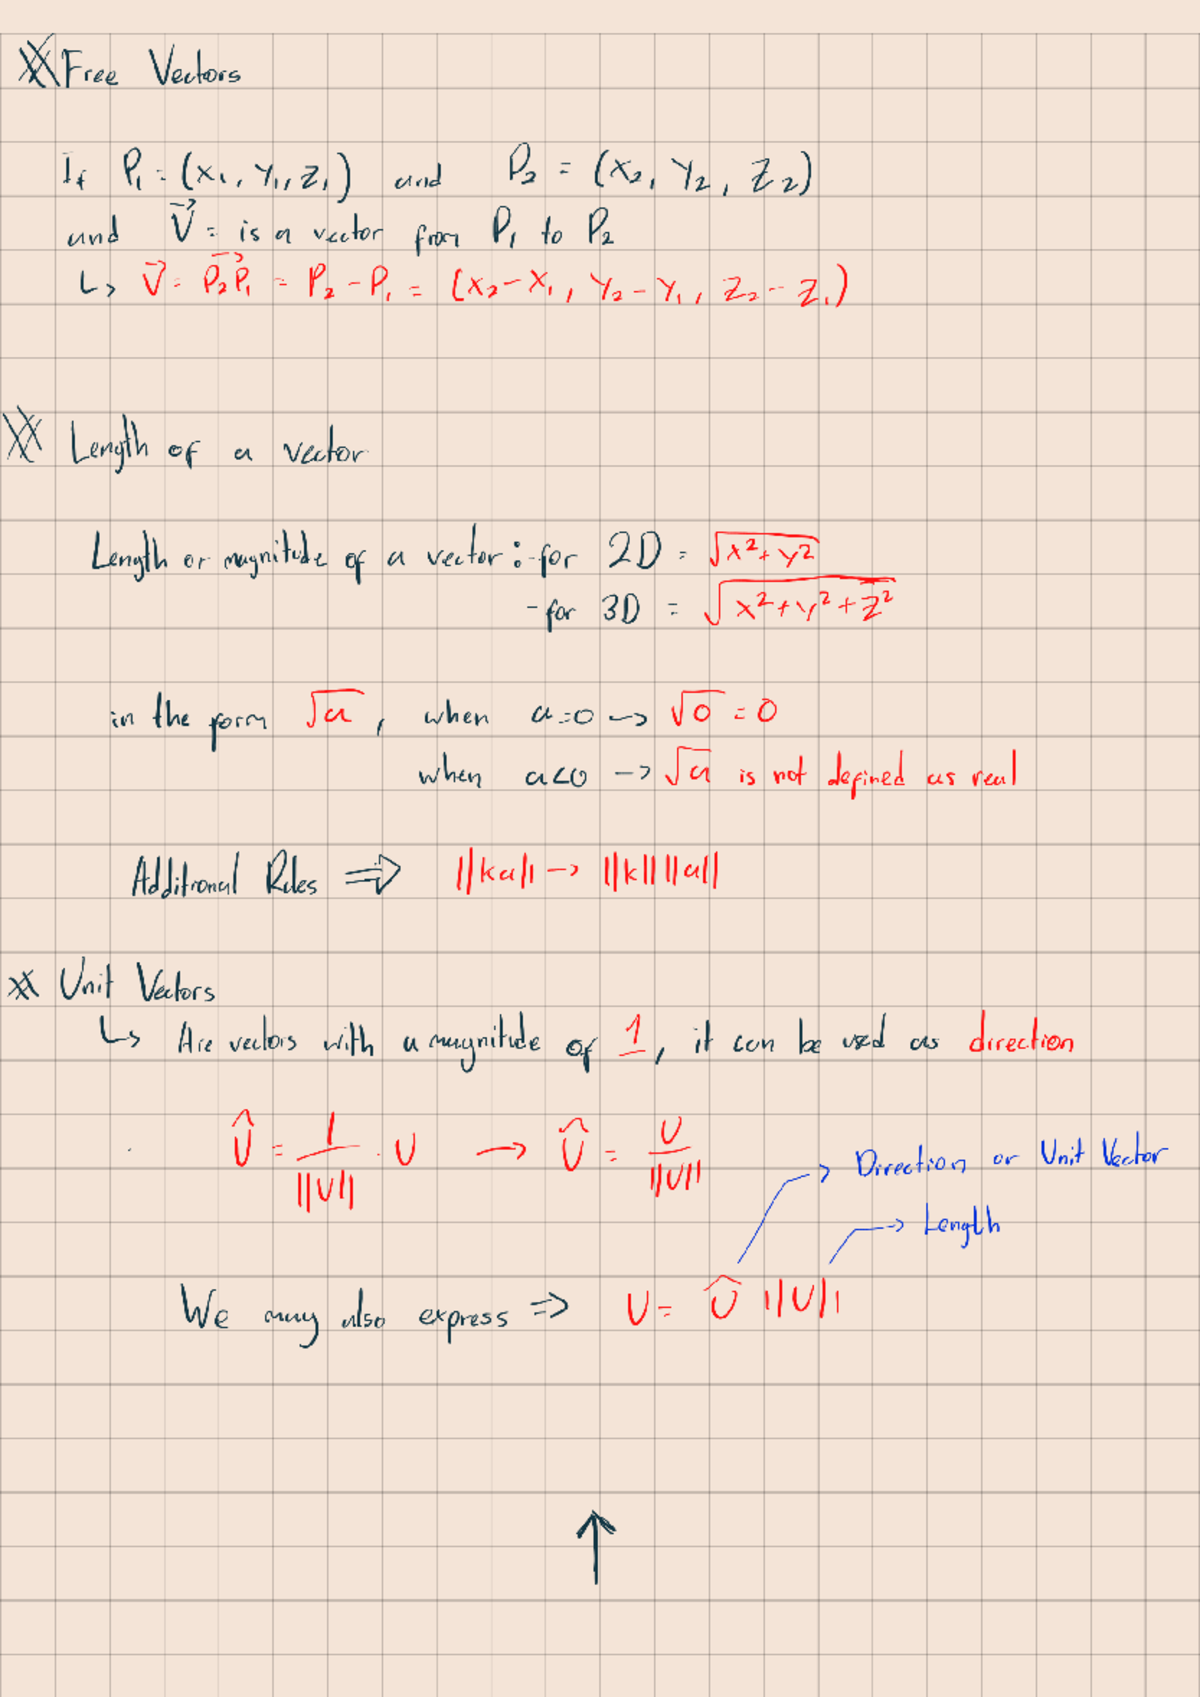 Free Vectors
If P₁ = (x₁, y₁, z₁) and P₂ = (x₂, y₂, z₂)
and V⃗ = is a vector from P₁ to P₂
↳ V⃗ = P₂P₁⃗ = P₂ - P₁ = (x₂ - x₁, y₂ - y₁, z₂ - z₁)
Length of a vector
Length or magnitude of a vector : - for 2D = √(x² + y²)
- for 3D = √(x² + y² + z²)
in the form √a, when a=0 → √0 = 0
when a<0 → √a is not defined as real
Additional Rules ⇒ ||ka|| → ||k|| ||a||
Unit Vectors
↳ Are vectors with a magnitude of 1, it can be used as direction
Û = 1/||U|| · U → Û = U/||U||
→ Direction or Unit Vector
→ Length
We may also express ⇒ U = Û ||U||
↑